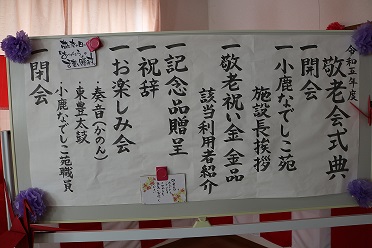 令和五年度
敬老会式典
一開会
一小鹿なでしこ苑
施設長挨拶
一敬老祝い金、金品
該当利用者紹介
一記念品贈呈
一祝辞
一お楽しみ会
・奏音(かのん)
・東豊太鼓
・小鹿なでしこ苑職員
一閉会